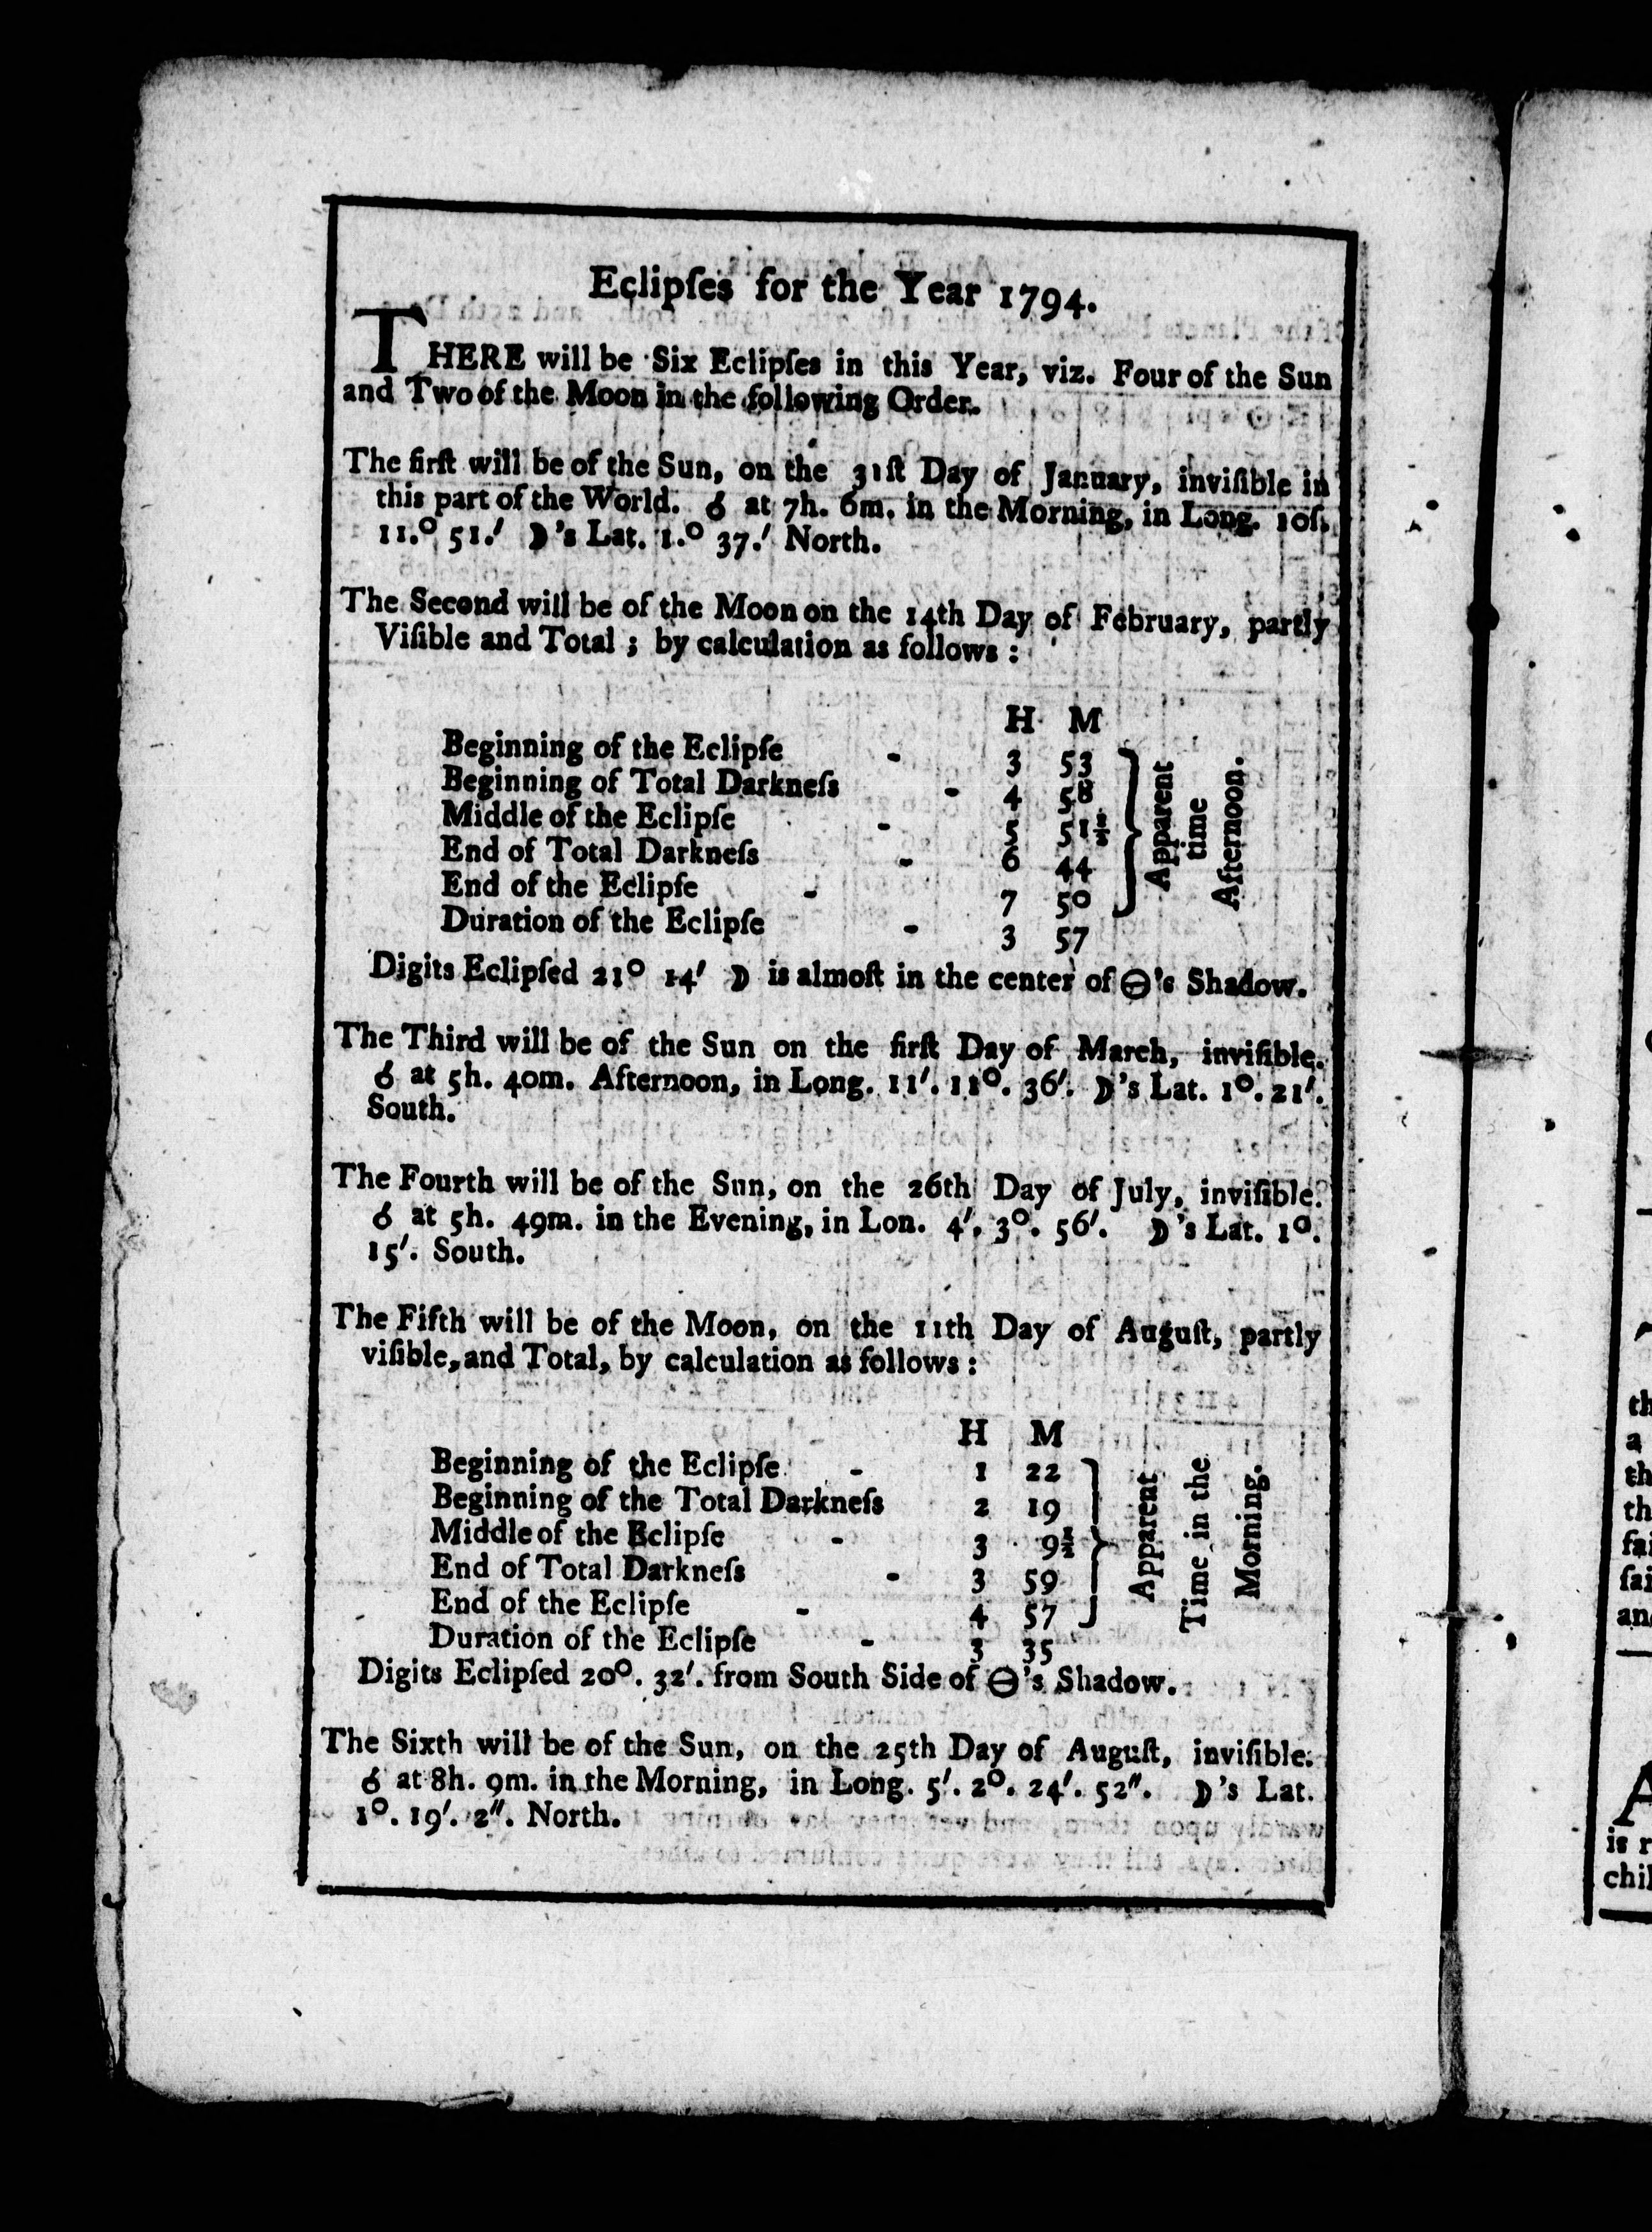 Eclipſes for the Year 1794.
THERE will be Six Eclipſes in this Year, viz. Four of the Sun
and Two of the Moon in the following Order.
The firſt will be of the Sun, on the 31ſt Day of January, inviſible in
this part of the World. ☌ at 7h. 6m. in the Morning, in Long. 10ſ.
11.° 51.′ ☽'s Lat. 1.° 37.′ North.
The Second will be of the Moon on the 14th Day of February, partly
Viſible and Total; by calculation as follows:
H M
Beginning of the Eclipſe - 3 53
Beginning of Total Darkneſs - 4 58
Middle of the Eclipſe - 5 51½
End of Total Darkneſs - 6 44
End of the Eclipſe - 7 50
Duration of the Eclipſe - 3 57
Apparent
time
Afternoon.
Digits Eclipſed 21° 14′ ☽ is almoſt in the center of ⊖'s Shadow.
The Third will be of the Sun on the firſt Day of March, inviſible.
☌ at 5h. 40m. Afternoon, in Long. 11′. 11°. 36′. ☽'s Lat. 1°. 21′.
South.
The Fourth will be of the Sun, on the 26th Day of July, inviſible.
☌ at 5h. 49m. in the Evening, in Lon. 4′. 3°. 56′. ☽'s Lat. 1°.
15′. South.
The Fifth will be of the Moon, on the 11th Day of Auguſt, partly
viſible, and Total, by calculation as follows:
H M
Beginning of the Eclipſe - 1 22
Beginning of the Total Darkneſs 2 19
Middle of the Eclipſe - 3 9½
End of Total Darkneſs - 3 59
End of the Eclipſe - 4 57
Duration of the Eclipſe - 3 35
Apparent
Time in the
Morning.
Digits Eclipſed 20°. 32′. from South Side of ⊖'s Shadow.
The Sixth will be of the Sun, on the 25th Day of Auguſt, inviſible.
☌ at 8h. 9m. in the Morning, in Long. 5′. 2°. 24′. 52″. ☽'s Lat.
1°. 19′. 2″. North.